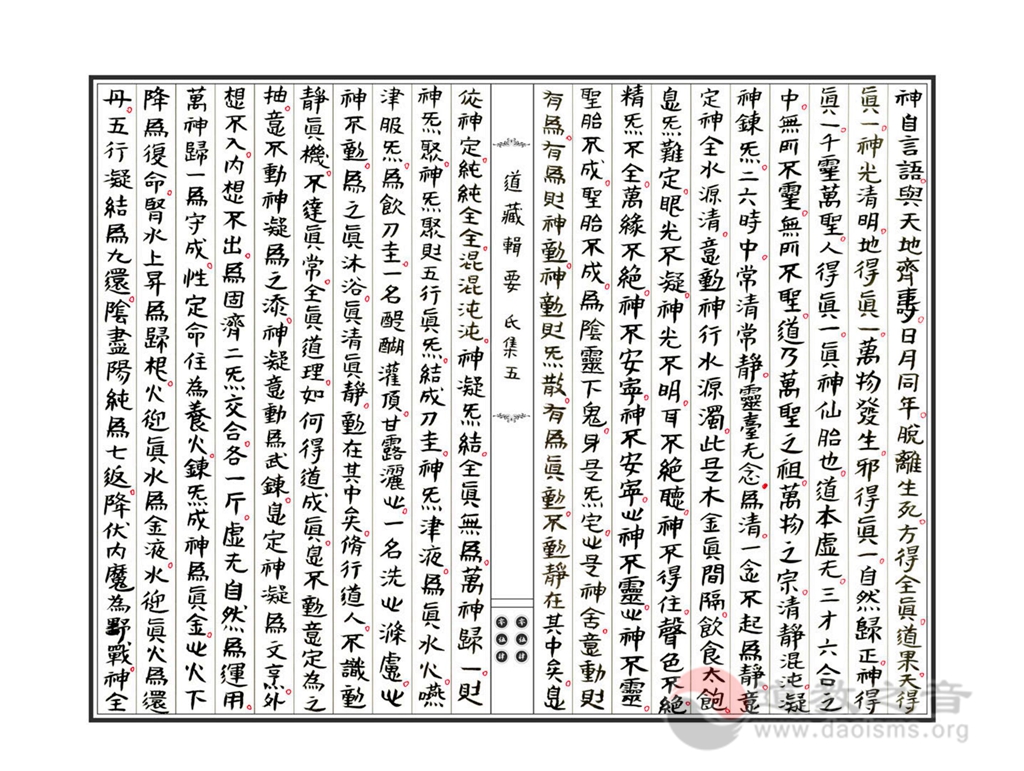 神自言語與天地齊壽日月同年脫離生死方得全眞道果天得
眞一神光清明地得眞一萬物發生邪得眞一自然歸正神得
眞一千靈萬聖人得眞一眞神仙胎也道本虛无三才六合之
中無所不靈無所不聖道乃萬聖之祖萬物之宗清靜混沌凝
神鍊炁二六時中常清常靜靈臺无念爲清一念不起爲靜意
定神全水源清意動神行水源濁此是木金眞間隔飲食太飽
息炁難定眼光不凝神光不明耳不絕聽神不得住聲色不絕
精炁不全萬緣不絕神不安寧神不安寧㞢神不靈㞢神不靈
聖胎不成聖胎不成爲陰靈下鬼身是炁宅㞢是神舍意動則
有爲有爲則神動神動則炁散有爲眞動不動靜在其中矣息
道藏輯要 氐集五
從神定純純全全混混沌沌神凝炁結全眞無爲萬神歸一則
神炁聚神炁聚則五行眞炁結成刀圭神炁津液爲眞水火嚥
津服炁爲飲刀圭一名醍醐灌頂甘露灑㞢一名洗㞢滌慮㞢
神不動爲之眞沐浴眞清眞靜動在其中矣脩行道人不識動
靜眞機不達眞常全眞道理如何得道成眞息不動意定爲之
抽意不動神凝爲之添神凝意動爲武鍊息定神凝爲文烹外
想不入內想不出爲固濟二炁交合各一斤虛无自然爲運用
萬神歸一爲守成性定命住為養火鍊炁成神爲眞金㞢火下
降爲復命腎水上昇爲歸根火迎眞水爲金液水迎眞火爲還
丹五行凝結爲九還陰盡陽純爲七返降伏內魔為野戰神全
www.daoisms.org